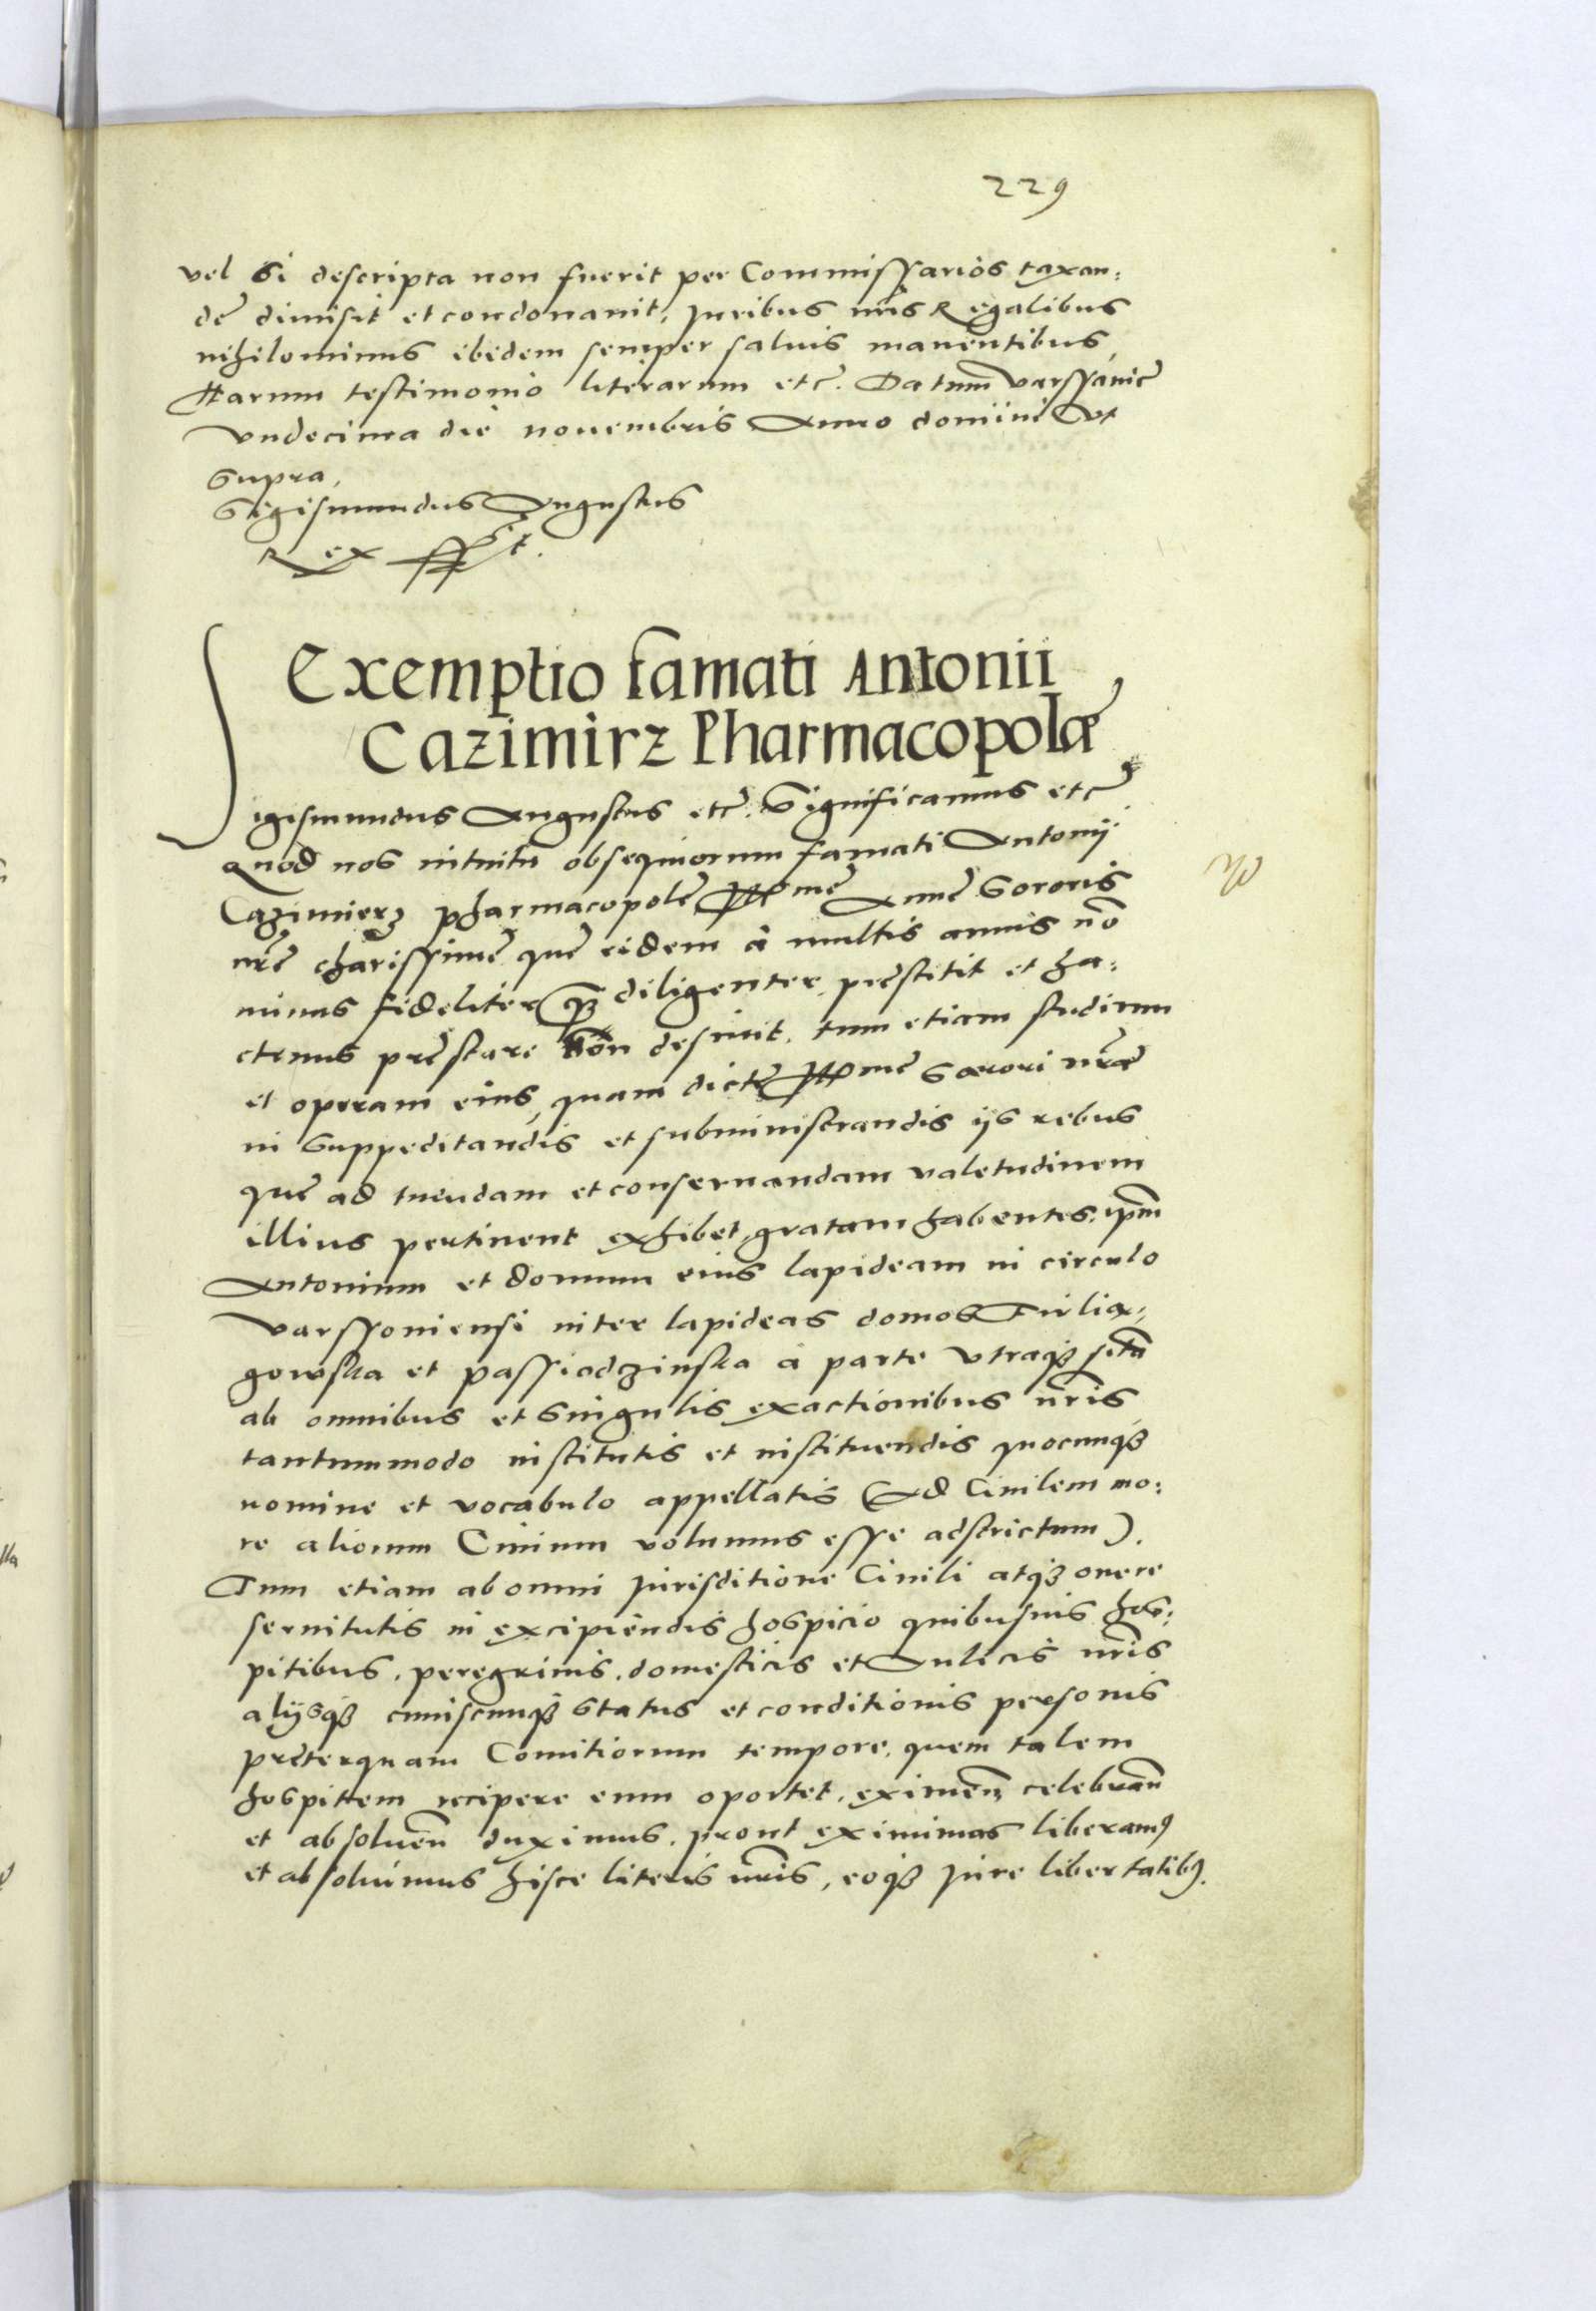 229
vel si descripta non fuerit per Commissarios taxan:
dę dimisit et condonavit, Iuribus nr̃is Regalibus
nihilominus ibidem semper salvis manentibus,
Harum testimonio literarum etc̃. Datum varssavię
vndecima die novembris Anno domini Vt
supra,
Sigismundus Augustus
Rex sst.
Exemptio famati Antonii
Cazimirz Pharmacopolæ,
Sigismundus Augustus etc̃. Significamus etc̃
Quod nos intuitu obsequiorum famati Antonij
Cazimierz pharmacopolę mę Annę sororis
nr̃ę charissimę quę eidem à multis annis nõ
minus fideliter diligenter pręstitit et ha:
ctenus pręstare non desinit, tum etiam studium
et operam eius, quam dictę mę sorori nr̃æ
in suppeditandis et subministrandis ijs rebus
quę ad tuendam et conservandam valetudinem
illius pertinent exhibet, gratam habentes, ipm̃
Antonium et domum eius lapideam in circulo
varssoviensi inter lapideas domos
gowska et à parte vtraq₃ sitã
ab omnibus et singulis exactionibus nr̃is
tantummodo institutis et instituendis quocunq₃
nomine et vocabulo appellatis (Ad Civilem mo:
re aliorum Civium volumus esse adstrictum).
Tum etiam ab omni Iurisditione Civili atq₃ onere
servitutis in excipiendis hospicio quibusvis hos:
pitibus, peregrinis, domesticis et Aulicis nr̃is
alijsq₃ cuiuscunq₃ status et conditionis personis
pręterquam Comitiorum tempore, quem talem
hospittem recipere eum oportet, eximeñ
et absolveñ duximus, prout eximimus liberamꝰ
et absolvimus hisce literis nr̃is, eoq₃ Iure libertatibꝰ.